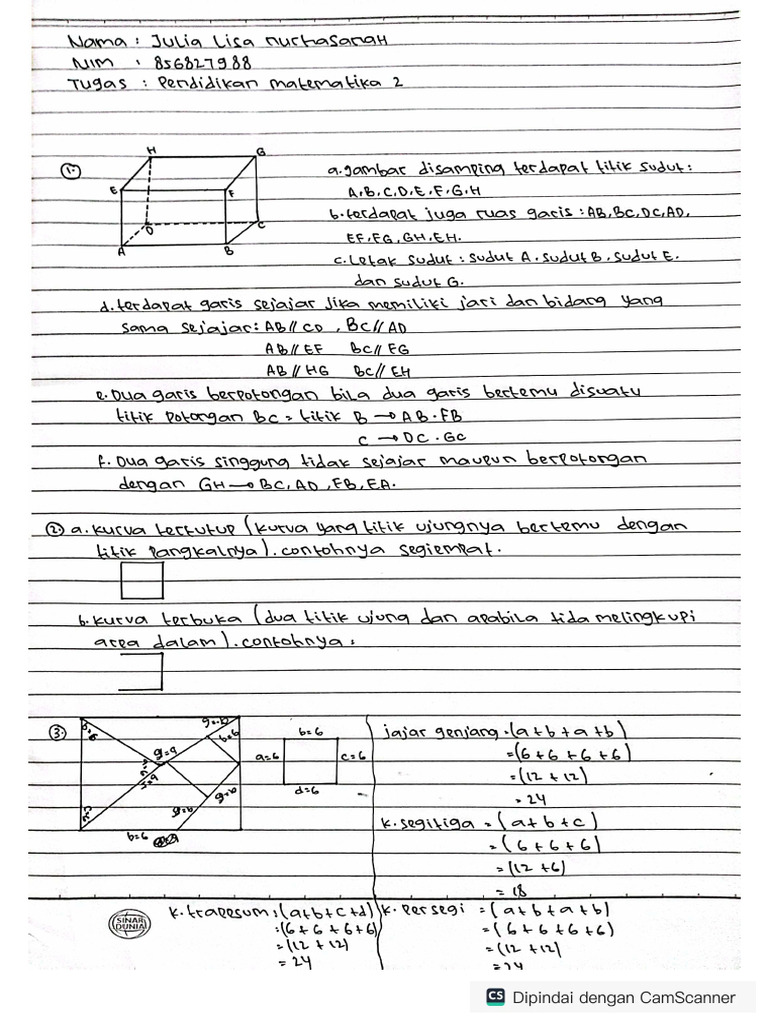 Nama : Julia Lisa nurhasanah
NIM : 856827988
Tugas : Pendidikan matematika 2
1.
H G
E F
D C
A B
a. gambar disamping terdapat titik sudut :
A, B, C, D, E, F, G, H
b. terdapat juga ruas garis : AB, BC, DC, AD,
EF, FG, GH, EH.
c. Letak sudut : sudut A. sudut B. sudut E.
dan sudut G.
d. terdapat garis sejajar jika memiliki jari dan bidang yang
sama sejajar : AB // CD , BC // AD
AB // EF BC // FG
AB // HG BC // EH
e. Dua garis berpotongan bila dua garis bertemu disuatu
titik potongan BC = titik B → AB . FB
C → DC . GC
f. Dua garis singgung tidak sejajar maupun berpotongan
dengan GH → BC, AD, FB, EA.
2. a. kurva tertutup (kurva yang titik ujungnya bertemu dengan
titik pangkalnya). contohnya segiempat.
b. kurva terbuka (dua titik ujung dan apabila tida melingkupi
area dalam). contohnya :
3.
b=6
a=6 c=6
d=6
b=6
jajar genjang = (a+b+a+b)
= (6+6+6+6)
= (12+12)
= 24
k. segitiga = (a+b+c)
= (6+6+6)
= (12+6)
= 18
k. trapesum : (a+b+c+d)
: (6+6+6+6)
= (12+12)
= 24
k. persegi = (a+b+a+b)
= (6+6+6+6)
= (12+12)
= 24
SINAR
DUNIA
CS Dipindai dengan CamScanner